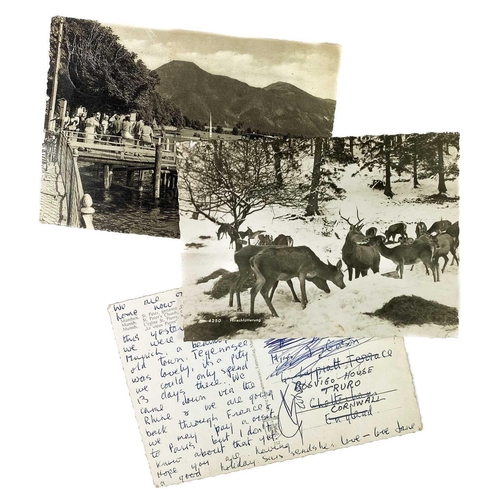 4250 Hirschfütterung
We are
home now
this yesterday
we were
Munich, a beautiful
old town. Tegernsee
was lovely, its a pity
we could only spend
3 days there. We
came down via the
Rhine & we are going
back through France &
we may pay a visit
to Paris but I don't
know about that yet.
Hope you are having
a good holiday sais heads love - love Jane
Miss
Lypiatt Terrace
BOSVIGO HOUSE
TRURO
Cheltenham
CORNWALL
England